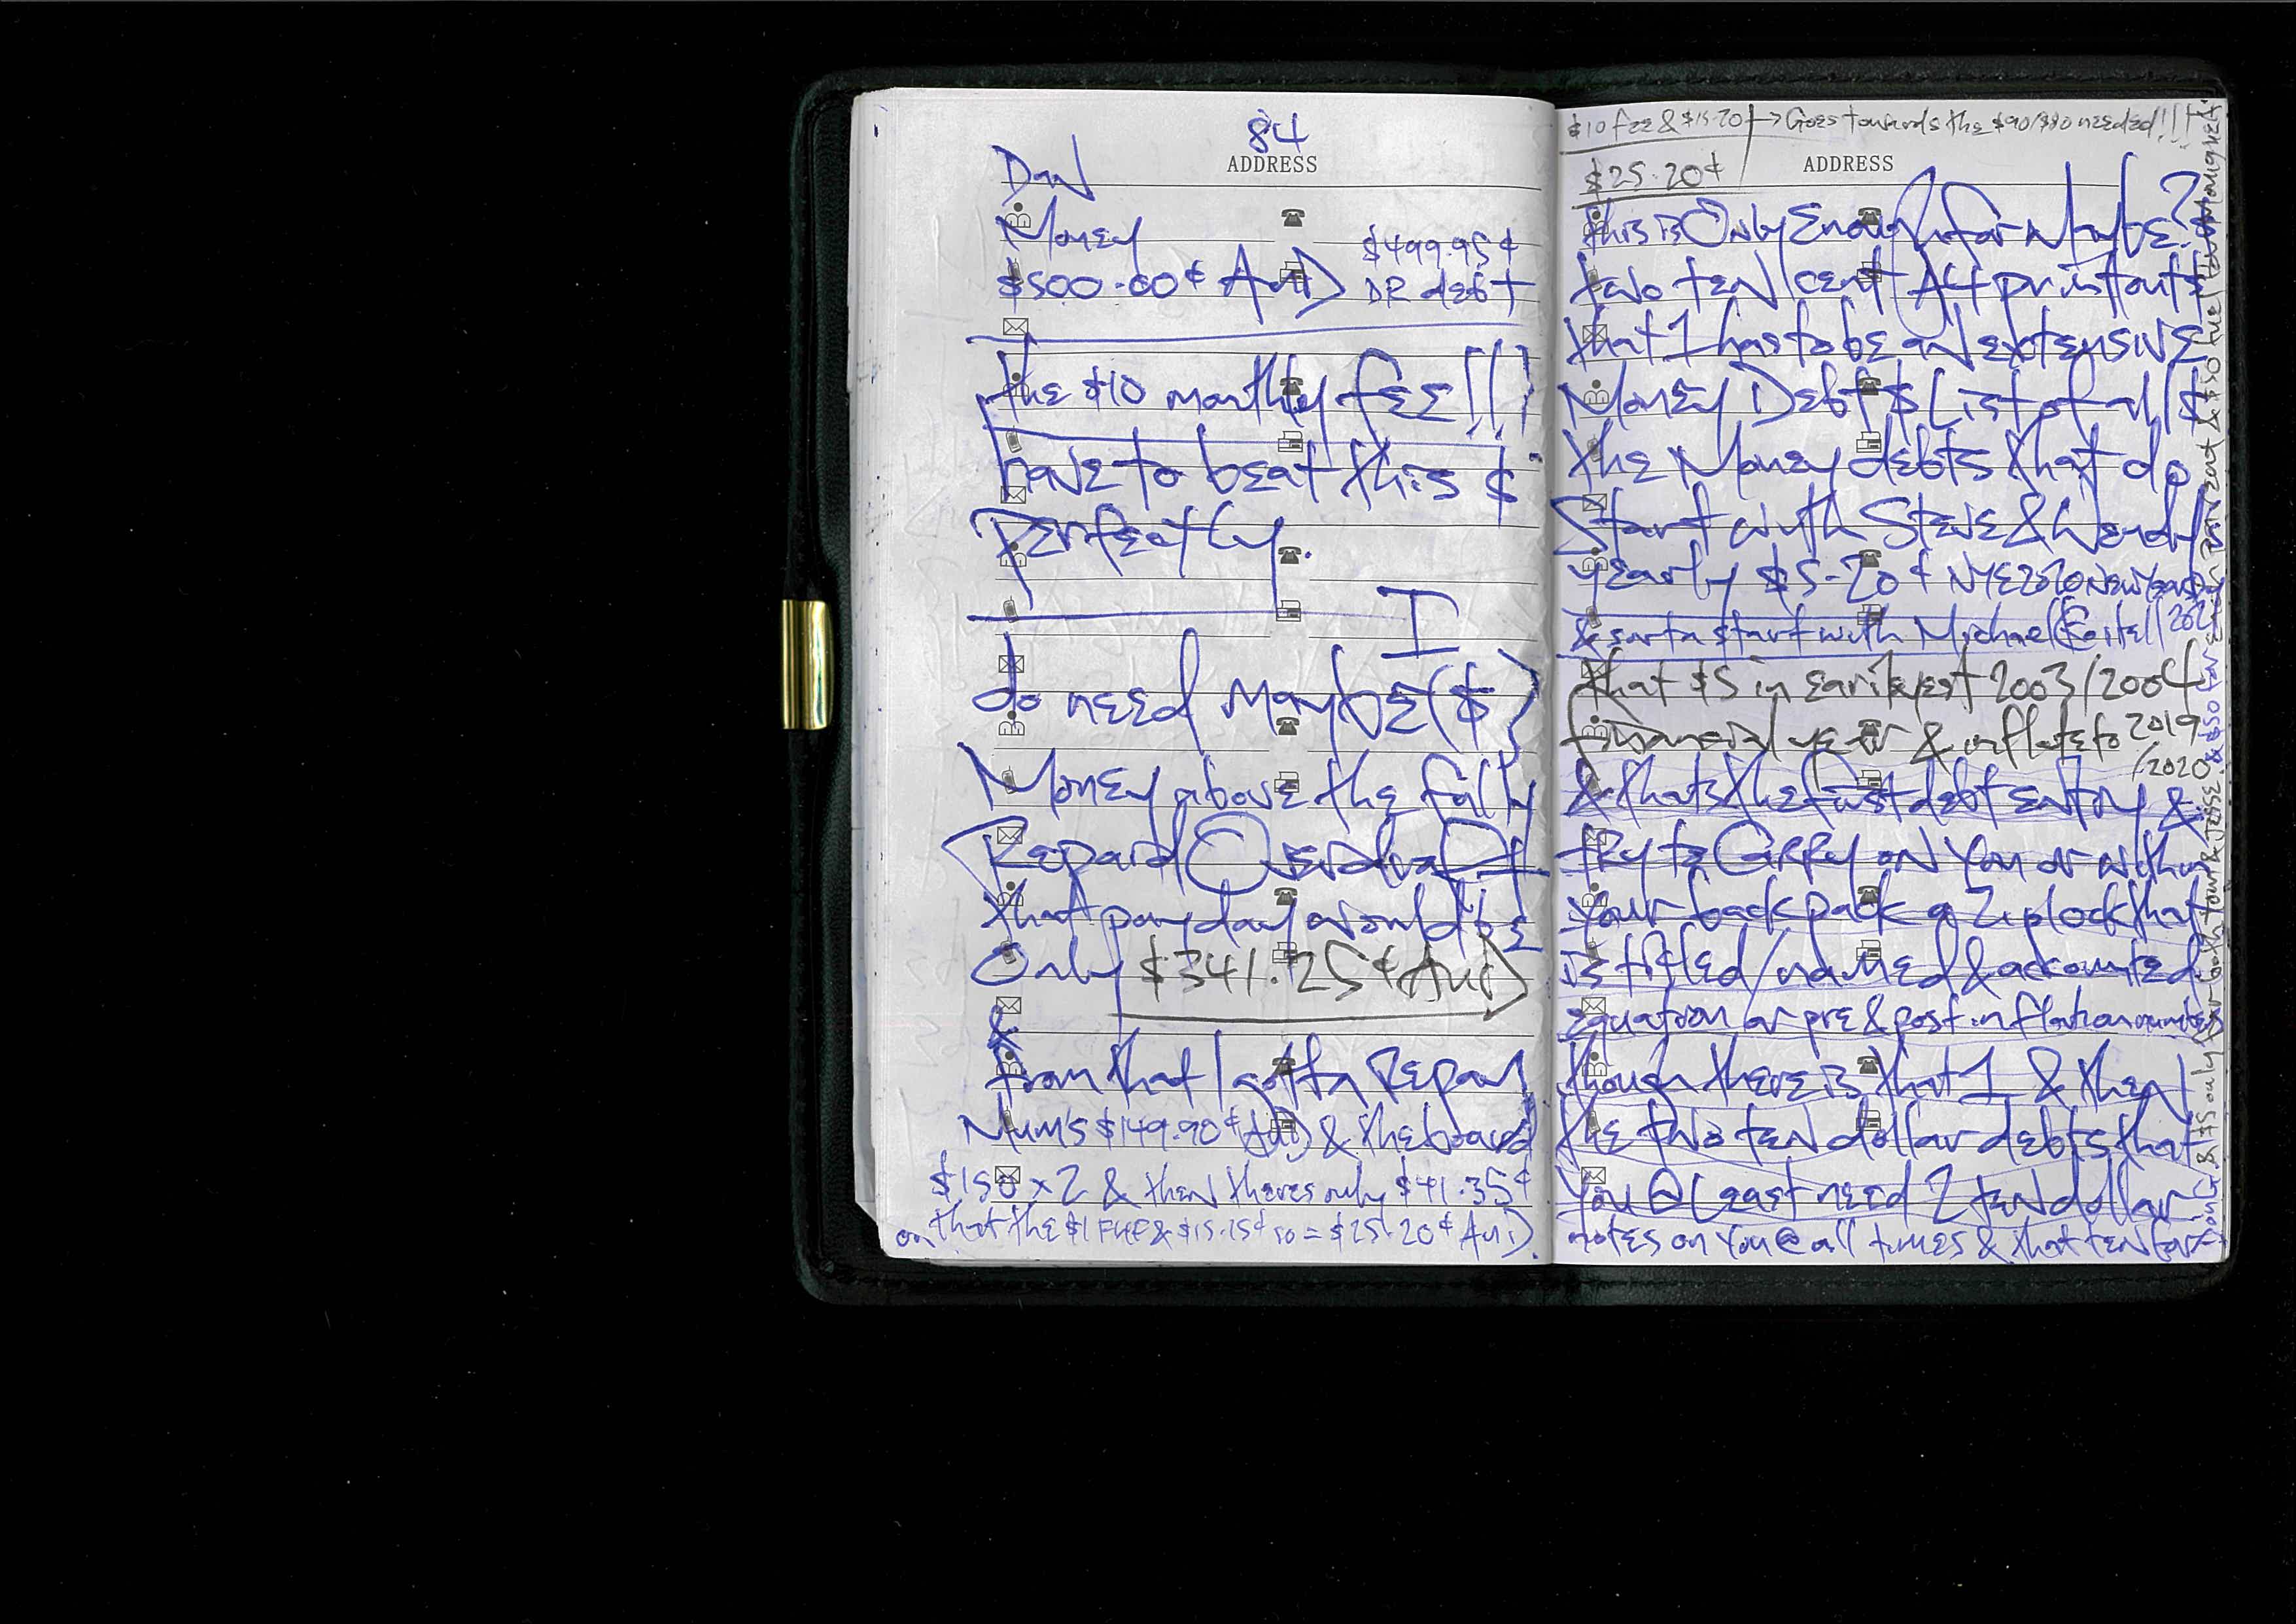 84
ADDRESS
Dan
Money
$500.00¢ Aud
$499.95¢
DR debt
the $10 monthly fee!!!
have to beat this $
perfectly.
I
do need maybe ($)
Money above the fully
Repaid Overdraft
that payday would be
Only $341.25¢ Aud
&
from that I gotta Repay
Mum's $149.90¢ Aud & the board
$150 x 2 & then theres only $41.35¢
on that the $1 & $15.15¢ so = $25.20¢ Aud.
$10 fee & $15.20¢ → Goes towards the $90/$80 needed!!!
$25.20¢
ADDRESS
this is Only Enough for Maybe?
two ten cent A4 printouts
that 1 has to be an extensive
Money Debt $ List of all $
the Money debts that do
Start with Steve & Wendy
yearly $5-20¢ NYE 2020 New Years
& sorta start with Michael 2021
that $5 in earliest 2003/2004
financial year & inflate to 2019
/2020
& thats the first debt entry &
try to Carry on You or within
Your backpack a Ziplock that
is titled/named & accounted
equation or pre & post inflation
though there is that 1 & then
the two ten dollar debts that
You @ Least need 2 ten dollar
notes on You @ all times & that ten for
& $5 only for both Tony & Jesse & $50 for